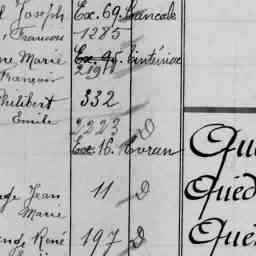 l Joseph Ex. 69. Cancale
, Francois 1285
re, Marie Ex. 95. Tinténiac
François 2191
Philibert 332
Emile 2223 D
Ex. 16. Evran
Jean 11 D
Marie
René 197 D
Qué
Quéd
Qué